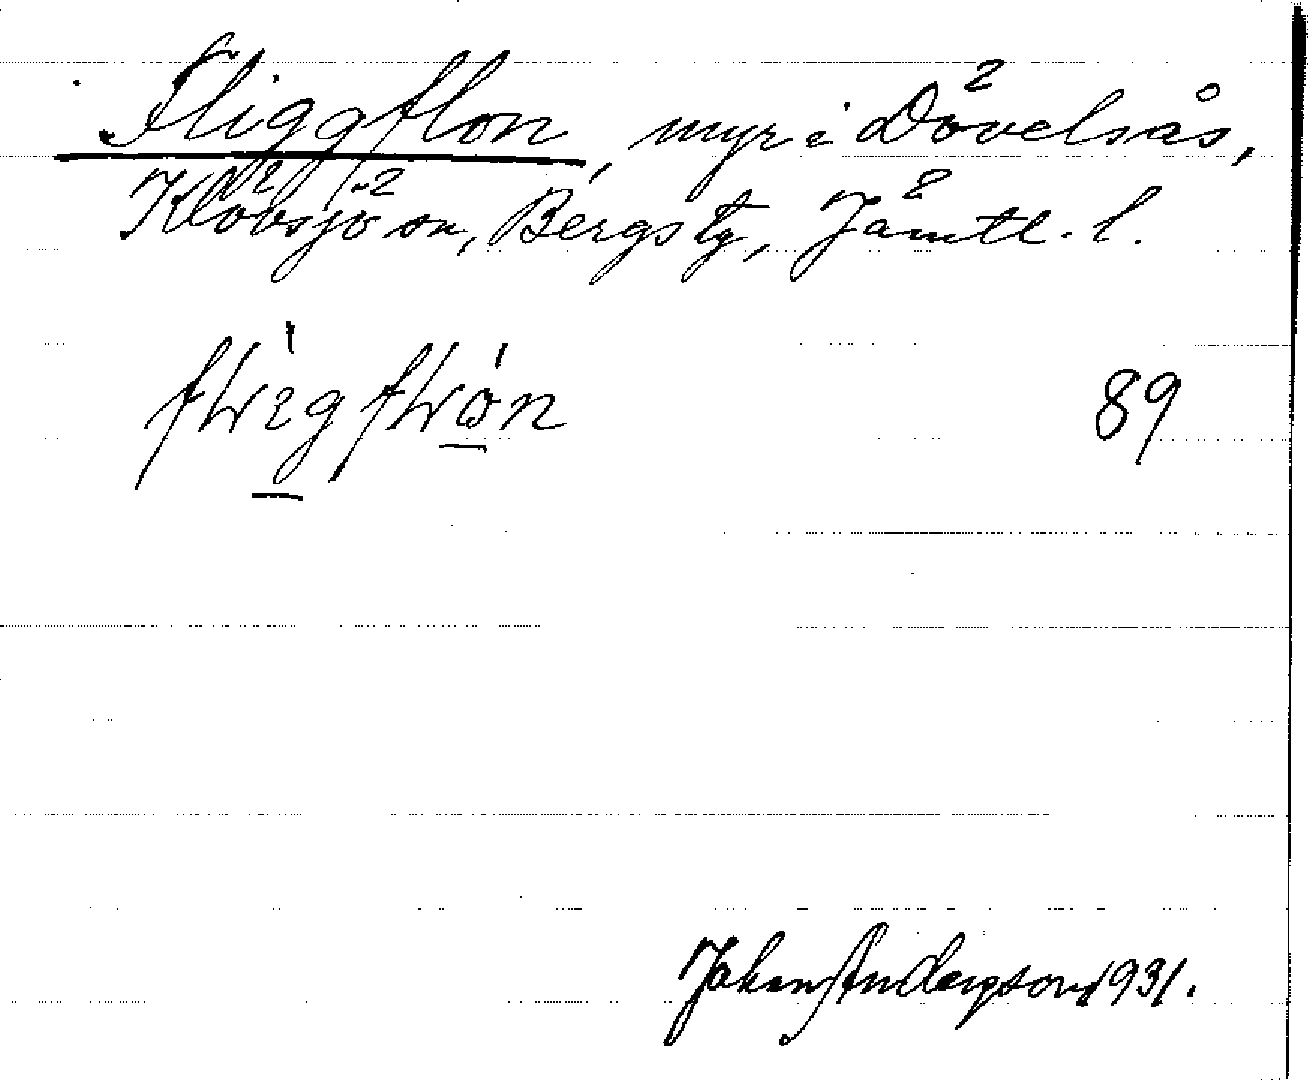 Fliggflon, myr i Dövelsås,
Klövsjö sn, Bergs tg, Jämtl. l.
89
Johan Anderson 1931.